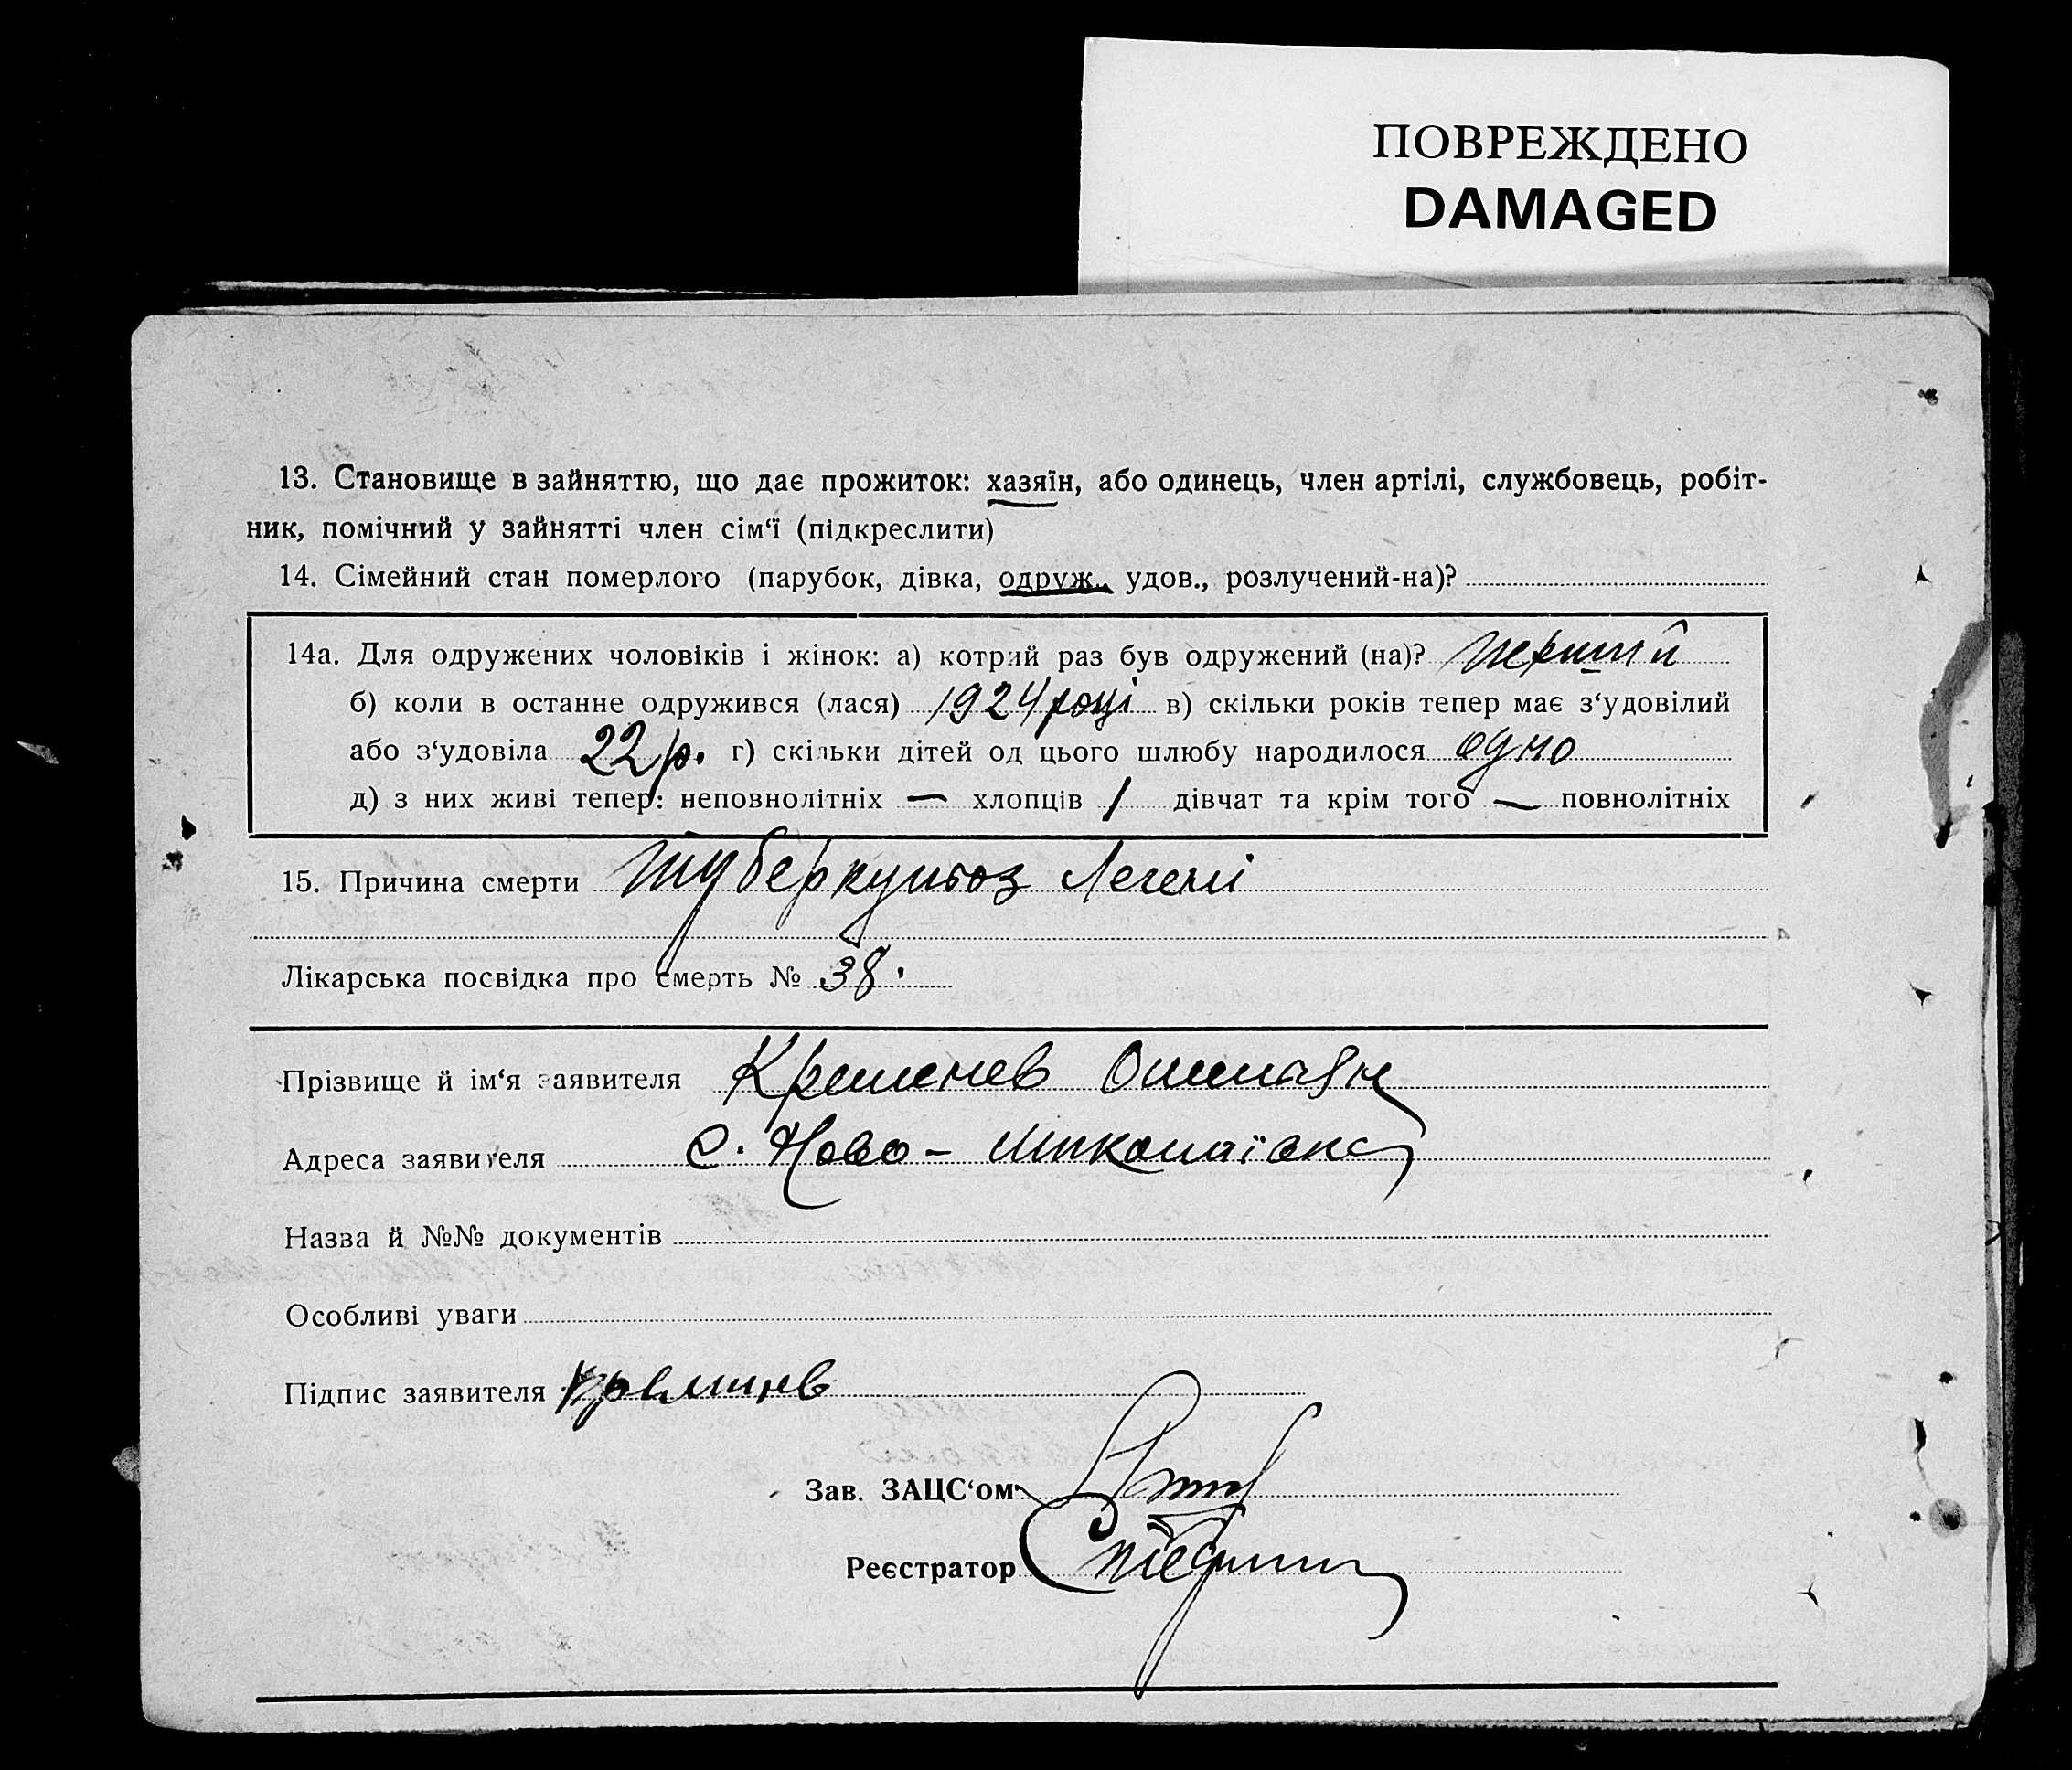 ПОВРЕЖДЕНО
DAMAGED
13. Становище в зайняттю, що дає прожиток: хазяїн, або одинець, член артілі, службовець, робіт-
ник, помічний у зайнятті член сім‘ї (підкреслити)
14. Сімейний стан померлого (парубок, дівка, одруж., удов., розлучений-на)?
14а. Для одружених чоловіків і жінок: а) котрий раз був одружений (на)? перший
б) коли в останне одружився (лася) 1924 році в) скільки років тепер має з‘удовілий
або з‘удовіла 22 р. г) скільки дітей од цього шлюбу народилося одно
д) з них живі тепер: неповнолітніх — хлопців / дівчат та крім того — повнолітніх
15. Причина смерти туберкульоз легені
Лікарська посвідка про смерть № 38.
Прізвище й ім‘я заявителя Кременев
Адреса заявителя с. Ново-Миколаївка
Назва й №№ документів
Особливі уваги
Підпис заявителя
Зав. ЗАЦС‘ом
Реєстратор